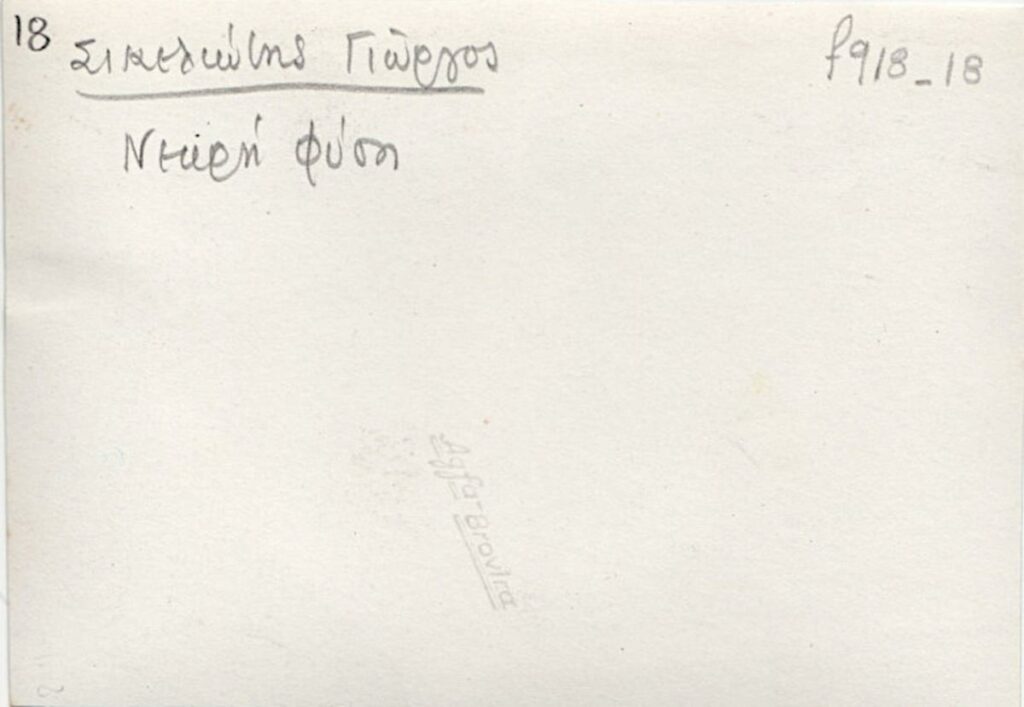 18
Σικελιώτης Γιώργος
f918_18
Νεκρή φύση
Agfa-Brovira